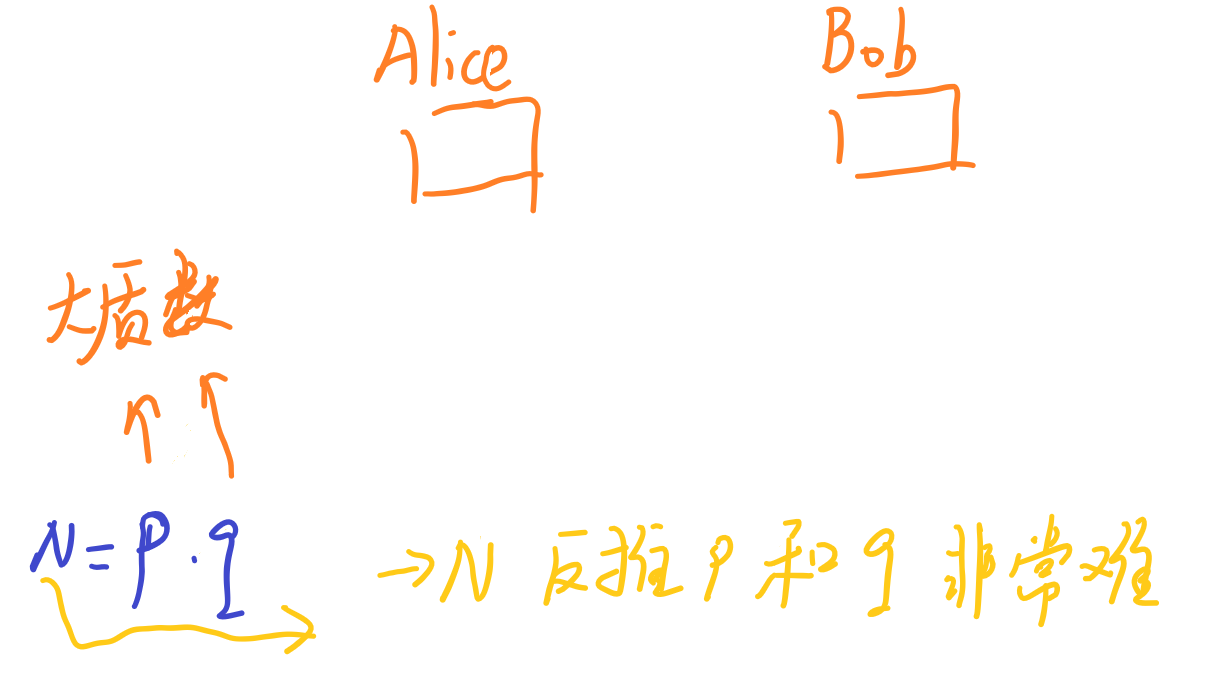 Alice Bob
大质数
N=p·q →N 反推p和q 非常难